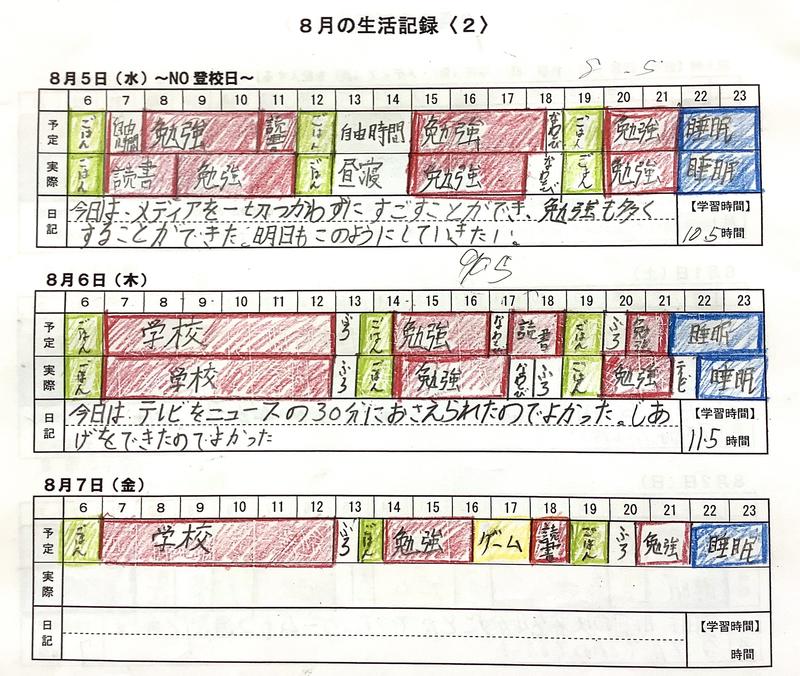 8月の生活記録〈2〉
8月5日(水)〜NO登校日〜
6 7 8 9 10 11 12 13 14 15 16 17 18 19 20 21 22 23
予定 ごはん 自由時間 勉強 読書 ごはん 自由時間 勉強 なわとび ごはん 勉強 睡眠
実際 ごはん 読書 勉強 ごはん 昼寝 勉強 なわとび ごはん 勉強 睡眠
日記 今日は、メディアを一切つかわずにすごすことができ、勉強も多く 【学習時間】
することができた。明日もこのようにしていきたい。 10.5時間
8月6日(木)
6 7 8 9 10 11 12 13 14 15 16 17 18 19 20 21 22 23
予定 ごはん 学校 ふろ ごはん 勉強 なわとび 読書 ごはん ふろ 勉強 睡眠
実際 ごはん 学校 ふろ ごはん 勉強 なわとび ふろ ごはん 勉強 テレビ 睡眠
日記 今日は、テレビをニュースの30分におさえられたのでよかった。しあ 【学習時間】
げをできたのでよかった 11.5時間
8月7日(金)
6 7 8 9 10 11 12 13 14 15 16 17 18 19 20 21 22 23
予定 ごはん 学校 ふろ ごはん 勉強 ゲーム 読書 ごはん ふろ 勉強 睡眠
実際
日記 【学習時間】
時間